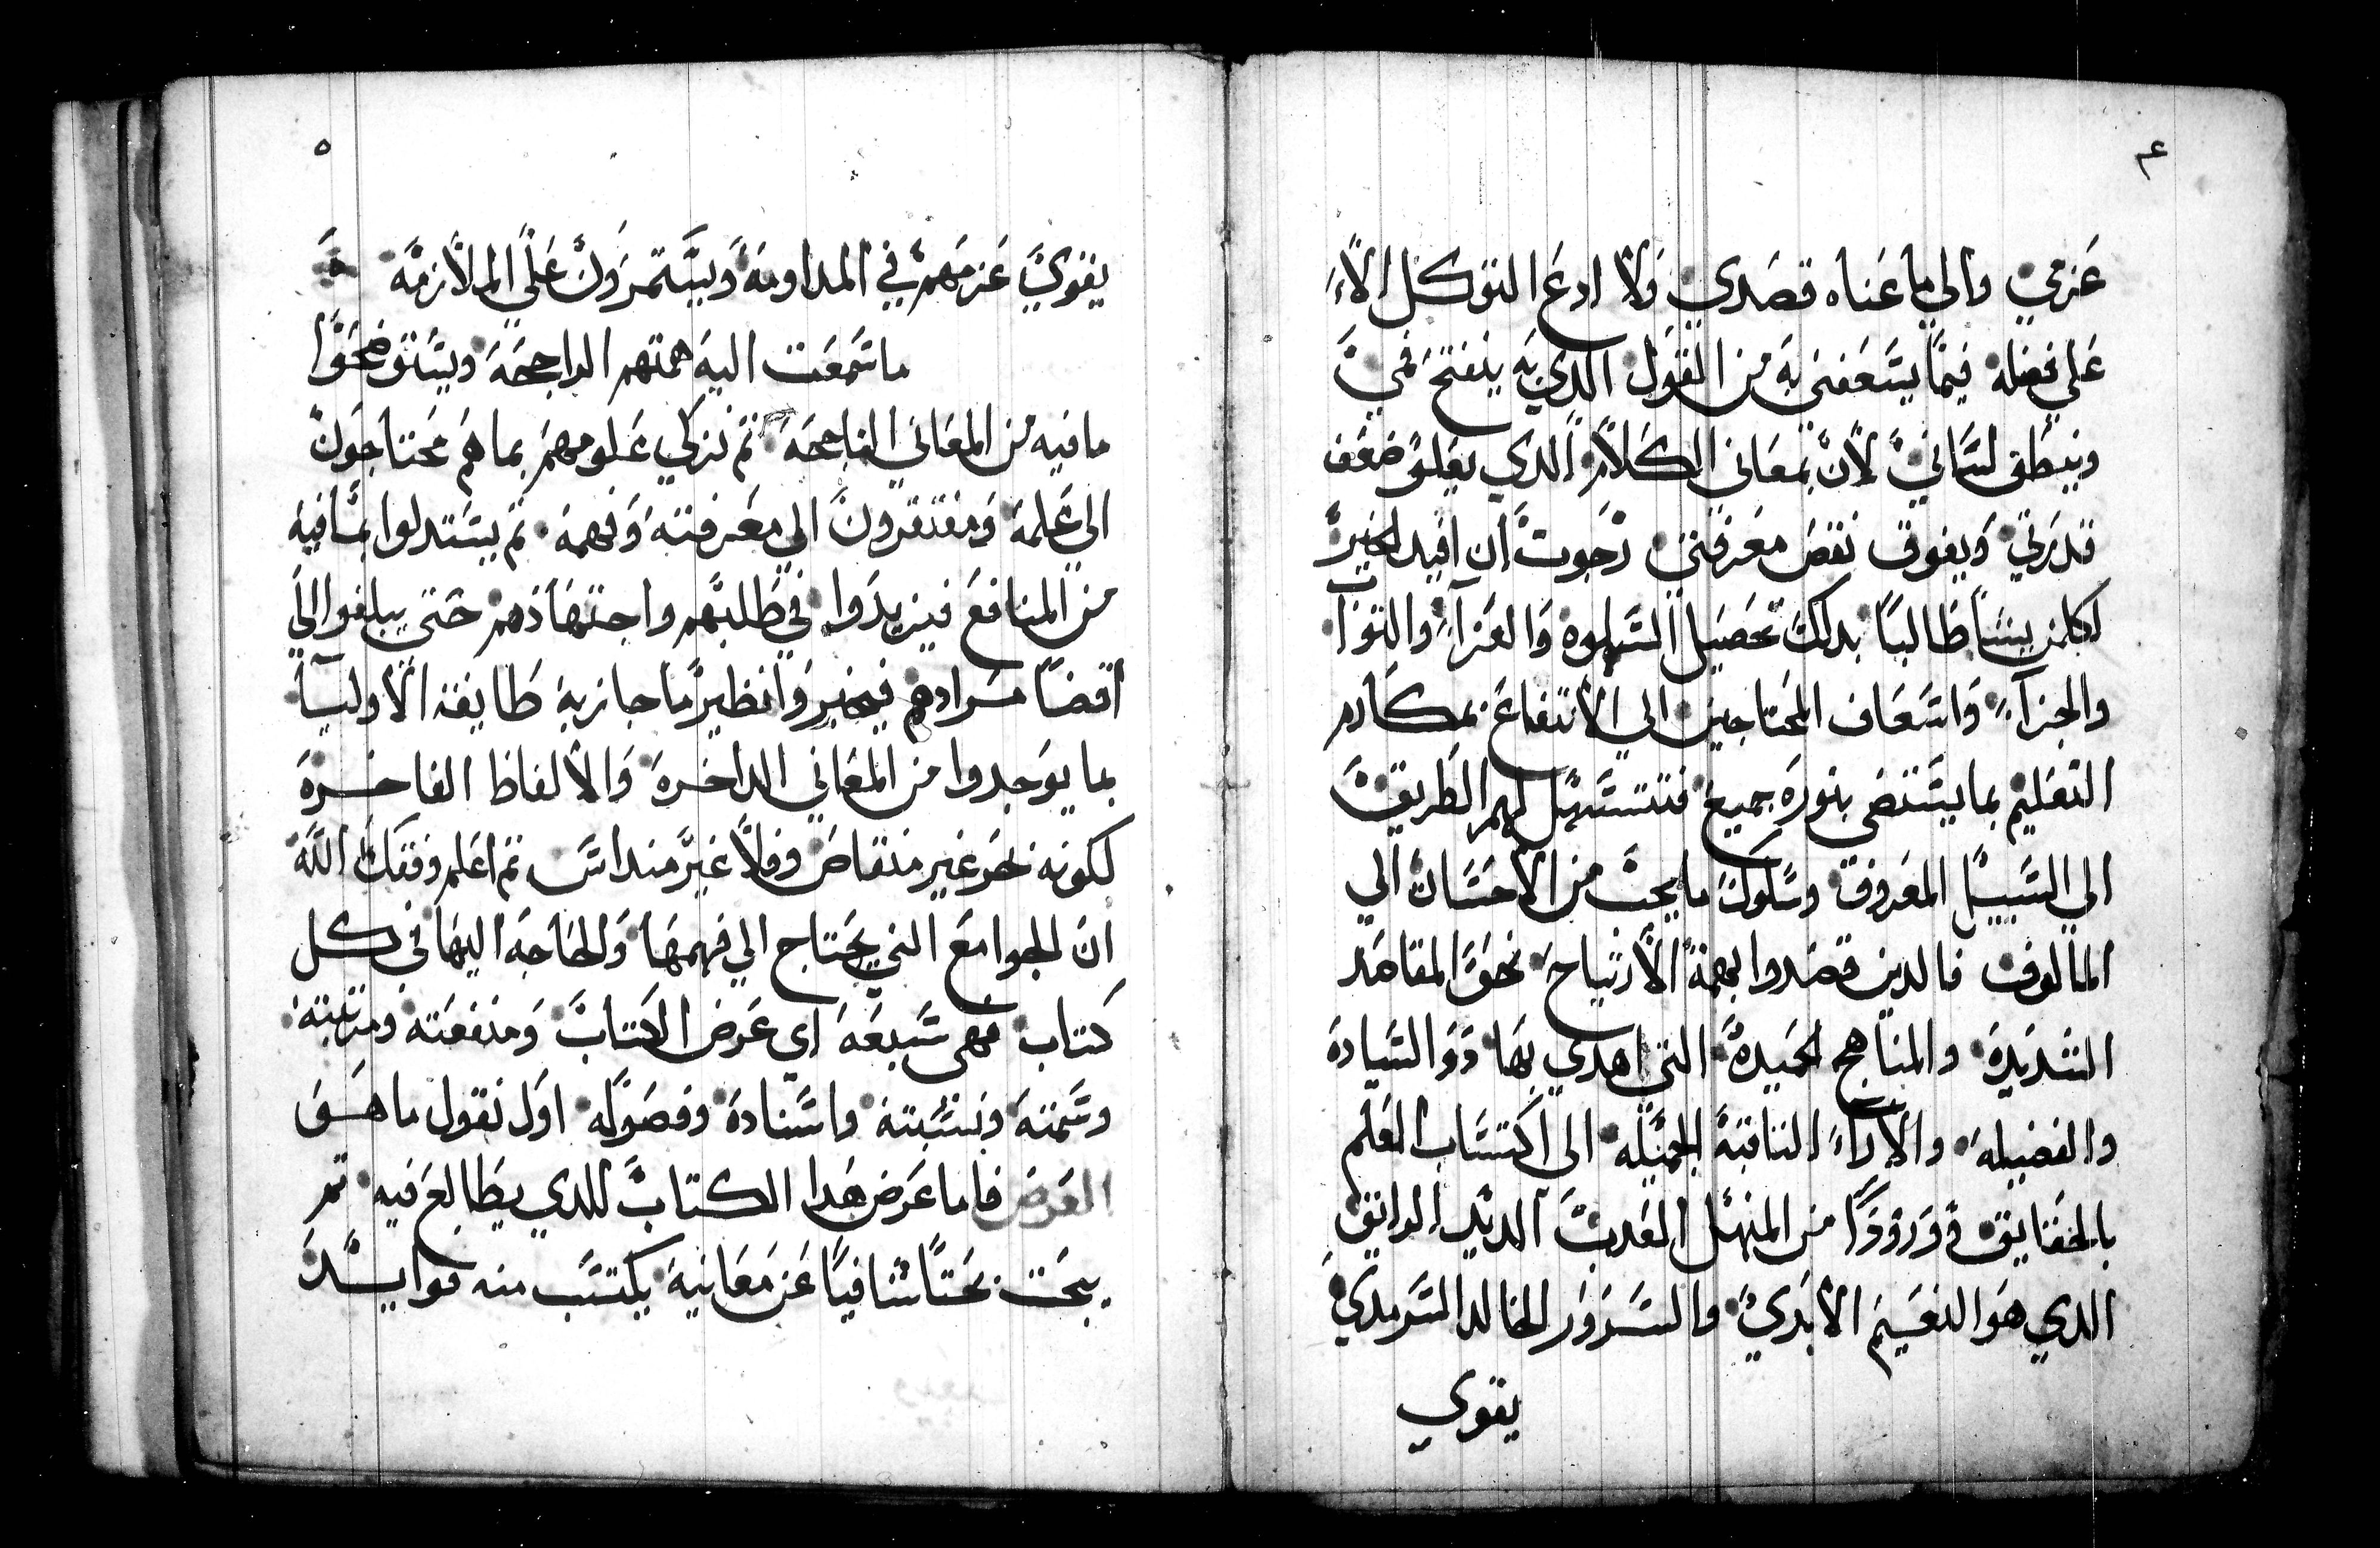 ٤
عزمي والي ما عناه قصدي ولا ادع التوكل الا
علي فضله فيما يسعفني به من القول الذي به ينفتح فمي
وينطق لساني لان بمعاني الكلام الدي يعلو ضعف
قدرتي ويفوق نقص معرفتي رجوت ان افيد الخير
لكلمن يشا طالبا بدلك تحصيل السلوه والعزآ والثواب
والجزآ واسعاف المحتاجين الي الانتفاع بمكارم
التعليم بما يستضي بنوره جميع فتتسهل لهم الطريق
الي السبيل المعروف وسلوك ما يجب من الاحسان الي
المالوف فالدين قصدوا بهمة الارتياح نحو المقاصد
الشديدة والمناهج الحميدة التي اهدي بها دوو السيادة
والفضيله والاراء الثاقبة الجميله الى اكتساب العلم
بالحقايق وورودا من المنهل العدب الديد الرايق
الدي هو النعيم الابدي والسرور الخالد السرمدي
يقوي
٥
يقوي عزمهم في المداومة ويستمرون علي الملازمة
ما سمعت اليه همتهم الراجحة ويستوضحوا
ما فيه من المعاني الناجحة ثم نزكي علومهم بما هم محتاجون
الي علمه ومفتقرون الي معرفته وفهمه ثم يستدلوا بما فيه
من المنافع فيزيدوا في طلبهم واجتهاذهم حتى يبلغوا الي
اقصا مرادهم فيخبروا نظير ما جازبه طايفة الاوليا
بما يوجدوا من المعاني الداخرة والالفاظ الفاخرة
لكونه نحر غير منقاض وفلا غير منداس ثم اعلم وفقك الله
ان الجوامع التي يحتاج الي فهمها والحاجه اليها في كل
كتاب فهي سبعة اي عرض الكتاب ومنفعته ومرتبته
وسمته ونسبته واسناده وفصوله اول نقول ما هو
العرض فاما عرض هدا الكتاب للدي يطالع فيه ثم
يبحت بحتا شافيا عن معانيه يكتسب منه فوايد